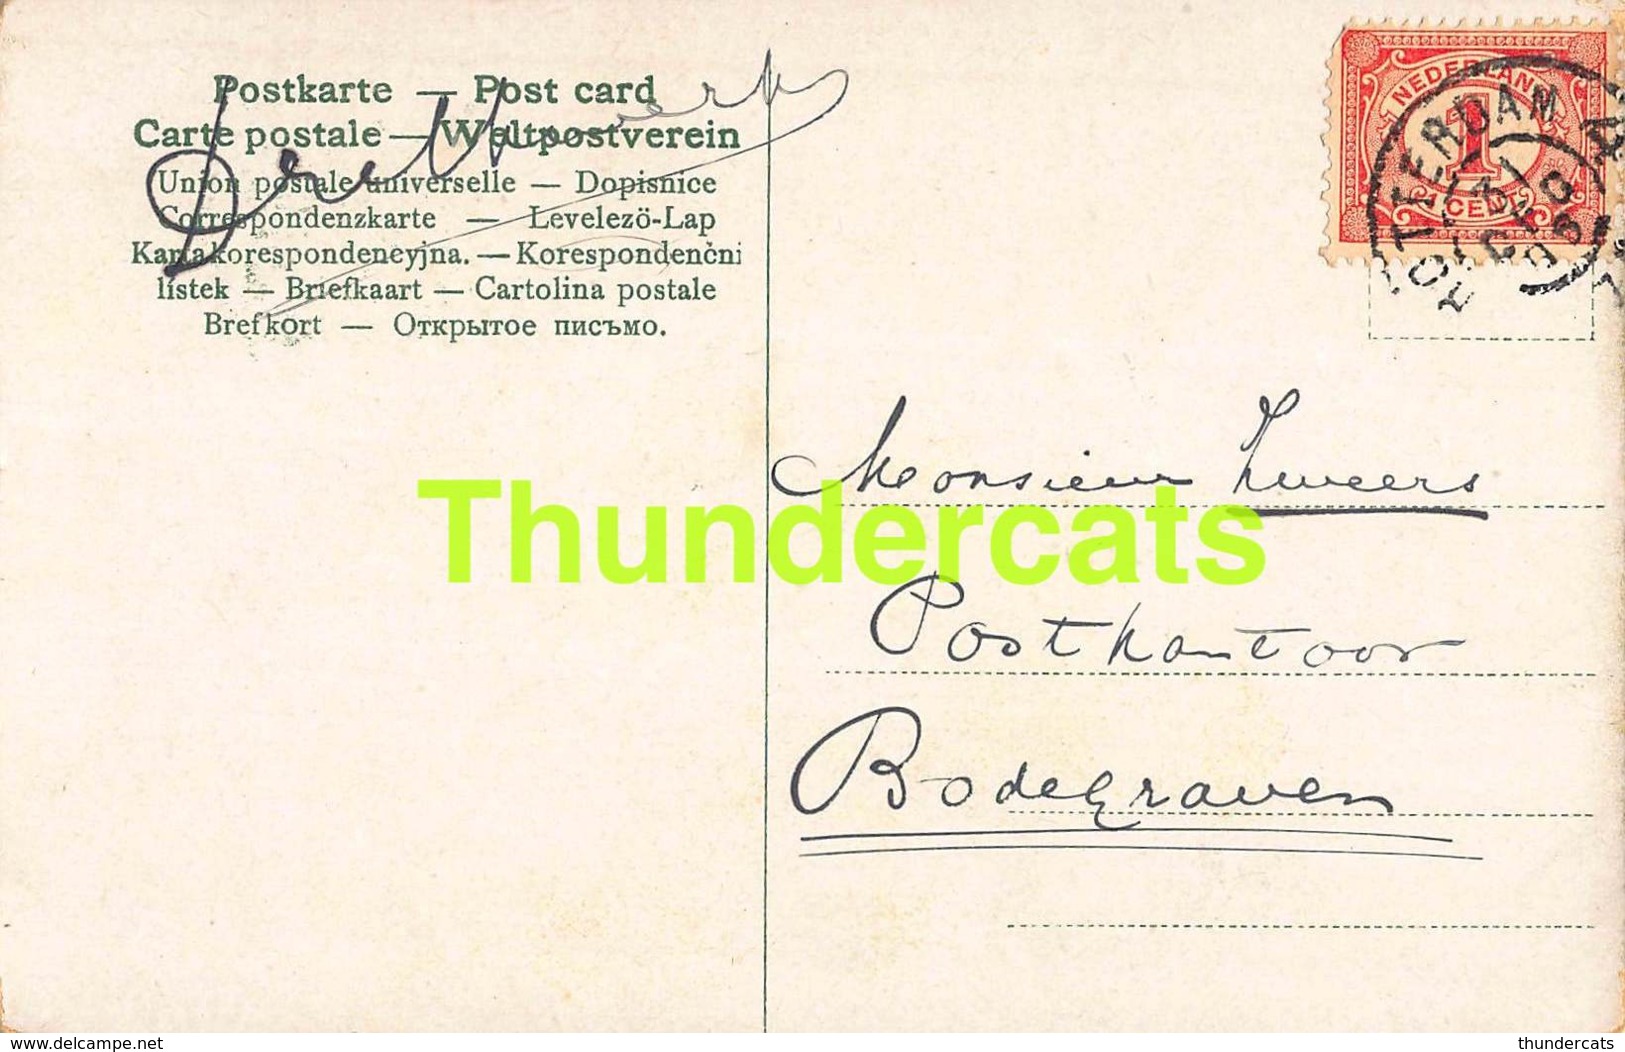 Postkarte — Post card
Carte postale — Weltpostverein
Union postale universelle — Dopisnice
Correspondenzkarte — Levelező-Lap
Karta korespondencyjna. — Korespondenčni
lístek — Briefkaart — Cartolina postale
Brefkort — Открытое письмо.
NEDERLAND
1
CENT
ROTTERDAM
Monsieur Zweers
Thundercats
Postkantoor
Bodegraven
www.delcampe.net
thundercats